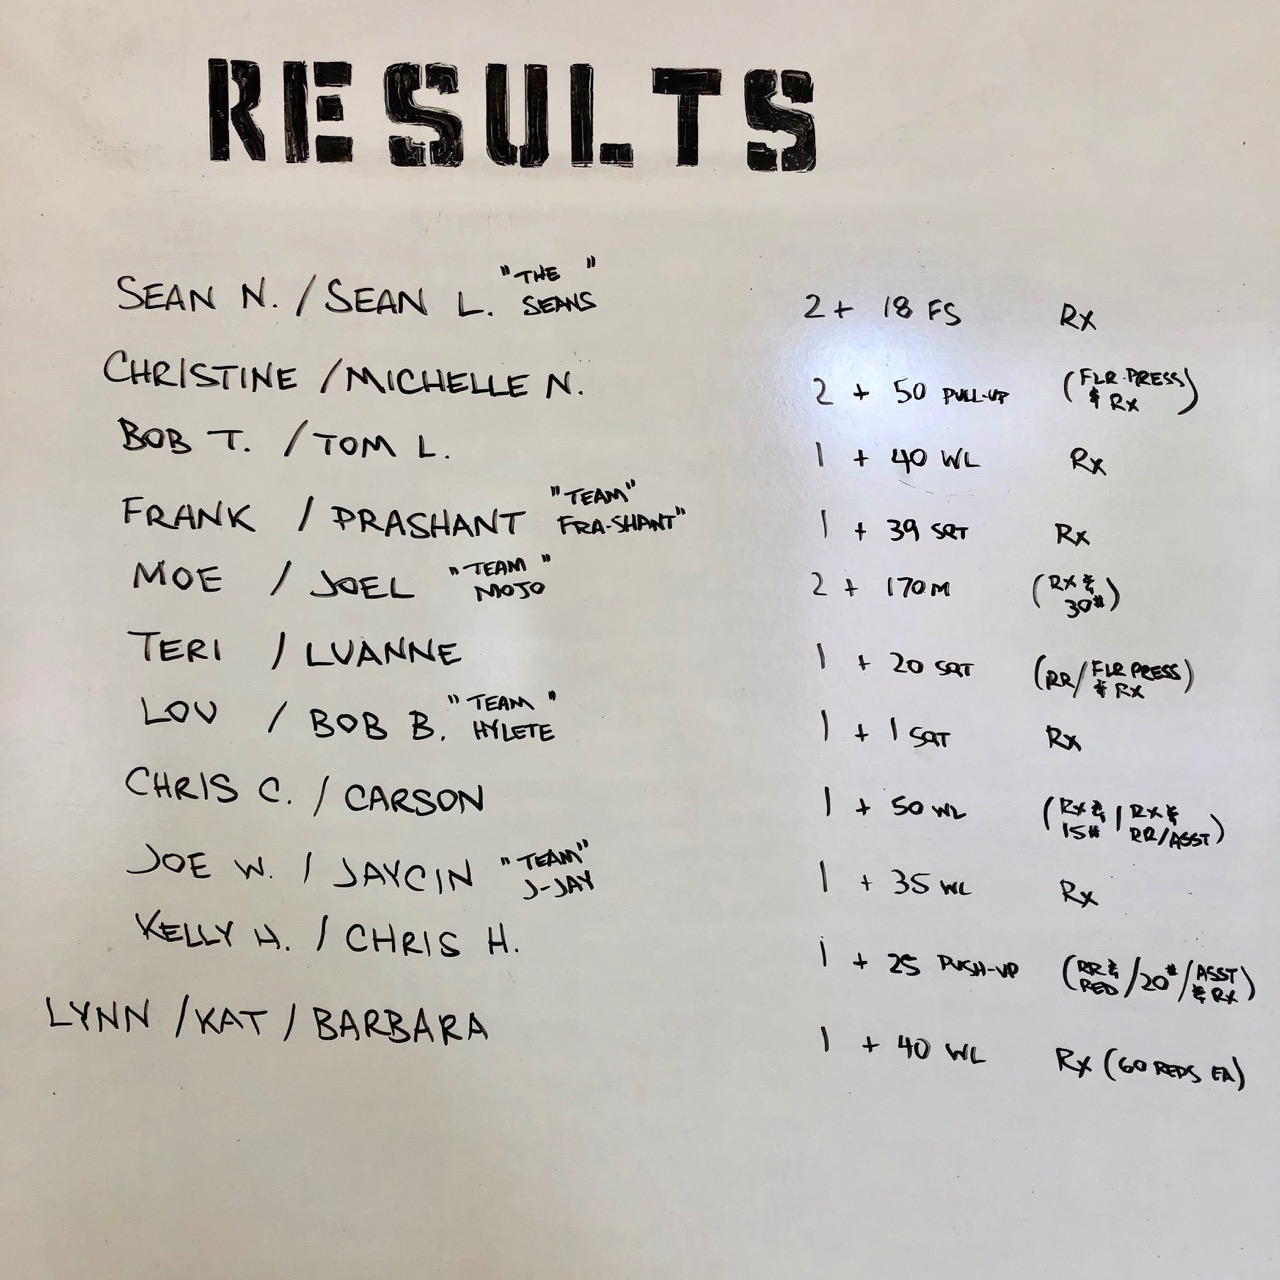 RESULTS
SEAN N. / SEAN L. "THE SEANS" 2 + 18 FS Rx
CHRISTINE / MICHELLE N. 2 + 50 PULL-UP (FLR PRESS & Rx)
BOB T. / TOM L. 1 + 40 WL Rx
FRANK / PRASHANT "TEAM" FRA-SHANT" 1 + 39 SQT Rx
MOE / JOEL "TEAM" MOJO 2 + 170 M (RX & 30#)
TERI / LUANNE 1 + 20 SQT (RR/FLR PRESS & RX)
LOU / BOB B. "TEAM" HYLETE 1 + 1 SQT Rx
CHRIS C. / CARSON 1 + 50 WL (RX & 15# / RX & RR/ASST)
JOE W. / JAYCIN "TEAM" J-JAY 1 + 35 WL Rx
KELLY H. / CHRIS H. 1 + 25 PUSH-UP (RR & RED /20#/ ASST & RX)
LYNN / KAT / BARBARA 1 + 40 WL Rx (60 REPS EA)